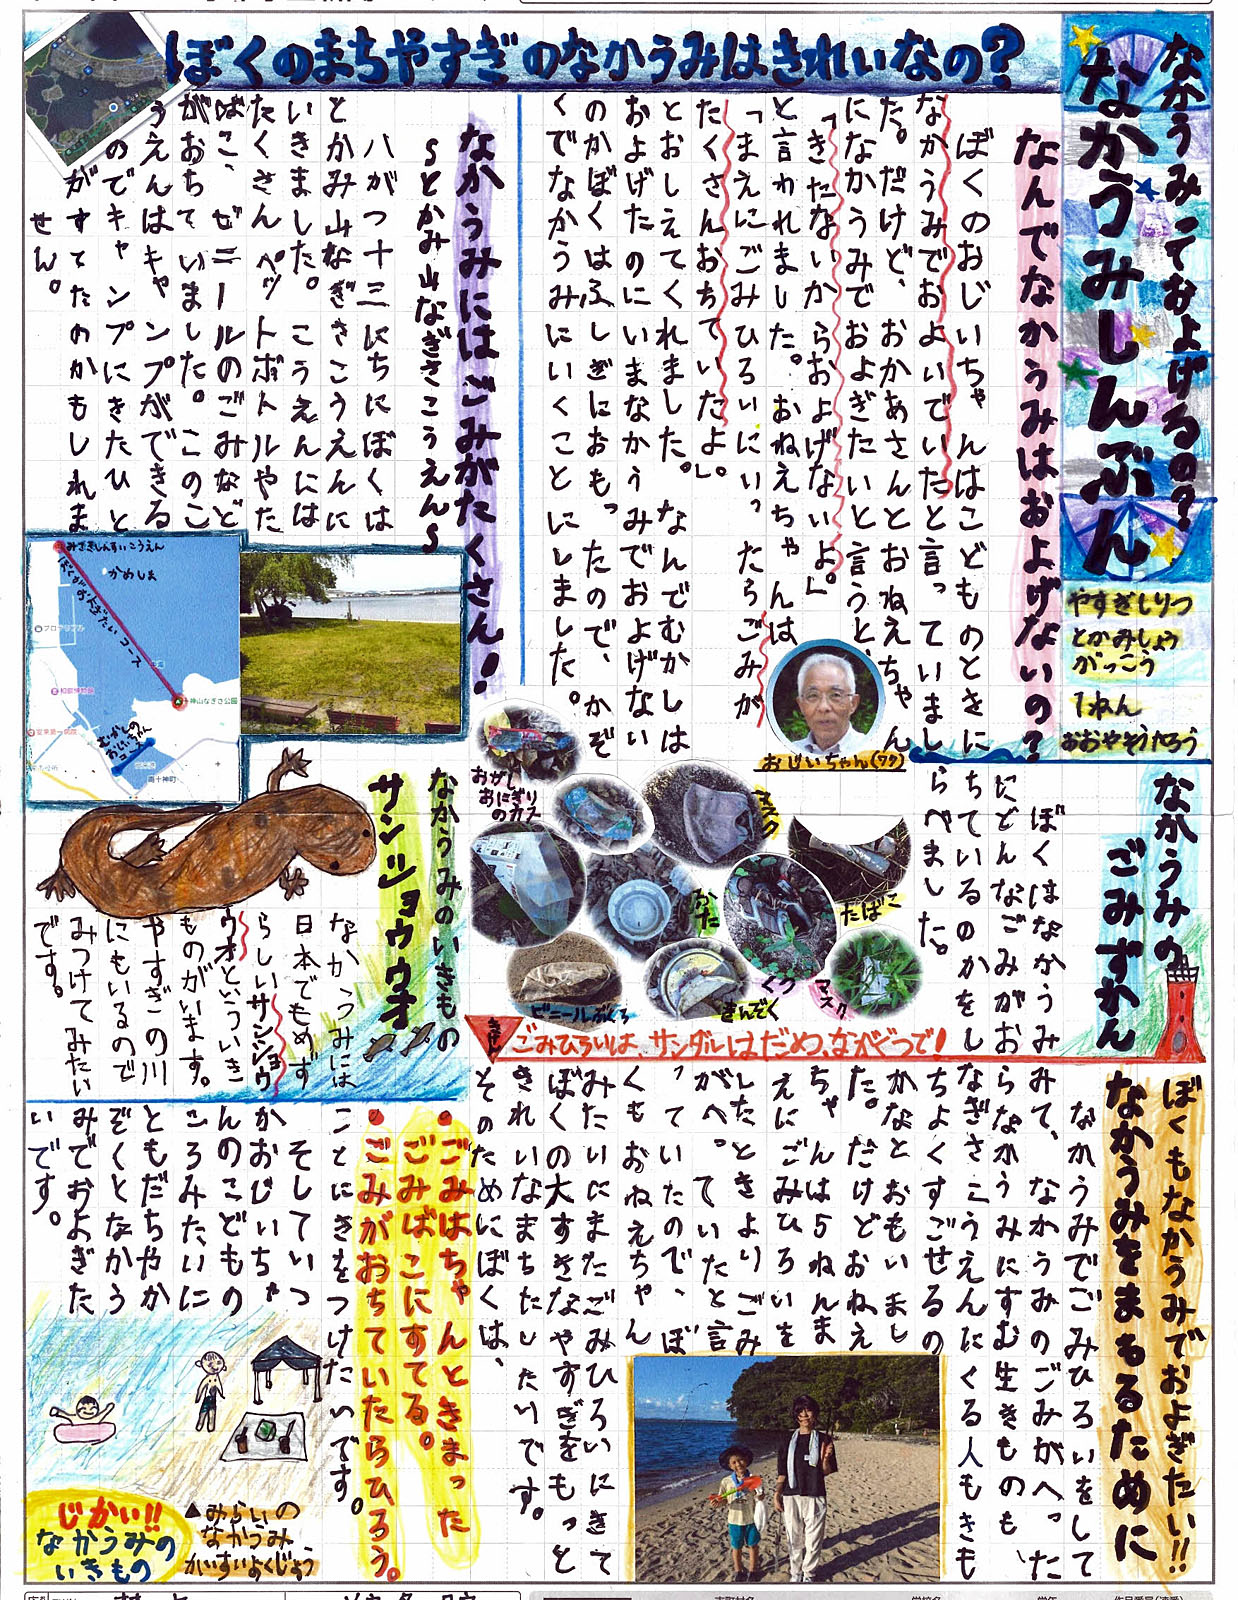 ぼくのまちやすぎのなかうみはきれいなの?
なかうみってあよげるの?
なかうみしんぶん
やすぎしりつ
とかみしょう
がっこう
1ねん
おおやそうたろう
なんでなかうみはおよげないの?
ぼくのおじいちゃんはこどものときに
なかうみでおよいでいたと言っていまし
た。だけど、おかあさんとおねえちゃん
になかうみでおよぎたいと言うと、
「きたないからおよげないよ。」
と言われました。おねえちゃんは
「まえにごみひろいにいったらごみが
たくさんおちていたよ」。
とおしえてくれました。なんでむかしは
およげたのにいまなかうみでおよげない
のかぼくはふしぎにおもったので、かぞ
くでなかうみにいくことにしました。
おじいちゃん(77)
なかうみにはごみがたくさん!
~とかみ山なぎさこうえん~
八がつ十三にちにぼくは
とかみ山なぎさこうえんに
いきました。こうえんには
たくさんペットボトルやた
ばこ、ビニールのごみなど
がおちていました。このこ
うえんはキャンプができる
のでキャンプにきたひと
がすてたのかもしれま
せん。
みさきしんすいこうえん
かめしま
ぼくがおよぎたいコース
十神山なぎさ公園
和鋼博物館
南十神町
なかうみの
ごみずかん
ぼくはなかうみ
にどんなごみがお
ちているのかをし
らべました。
おかし
おにぎり
のカス
たばこ
くつ
マスク
きんぞく
ビニールぶくろ
ごみひろいは、サンダルはだめ、ながぐつで!
なかうみのいきもの
サンショウウオ
なかうみには
日本でもめず
らしいサンショウ
ウオといういき
ものがいます。
やすぎの川
にもいるので
みつけてみたい
です。
ぼくもなかうみでおよぎたい!!
なかうみをまもるために
なかうみでごみひろいをして
みて、なかうみのごみがへった
らなかうみにすむ生きものも、
なぎさこうえんにくる人もきも
ちよくすごせるの
かなとおもいまし
た。だけどおねえ
ちゃんは5ねんま
えにごみひろいを
したときよりごみ
がへっていたと言
っていたので、ぼ
くもおねえちゃん
みたいにまたごみひろいにきて
ぼくの大すきなやすぎをもっと
きれいなまちにしたいです。
そのためにぼくは、
●ごみはちゃんときまった
ごみばこにすてる。
●ごみがおちていたらひろう。
ことにきをつけたいです。
そしていつ
かおじいちゃ
んのこどもの
ころみたいに
ともだちやか
ぞくとなかう
みでおよぎた
いです。
▲みらいの
なかうみ
かいすいよくじょう
じかい!!
なかうみの
いきもの